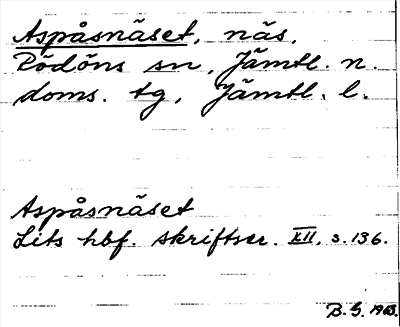 Aspåsnäset, näs,
Rödöns sn, Jämtl. n.
doms. tg, Jämtl. l.
Aspåsnäset
Lits hbf. skriftser. XII, s. 136.
B. G. 1963.